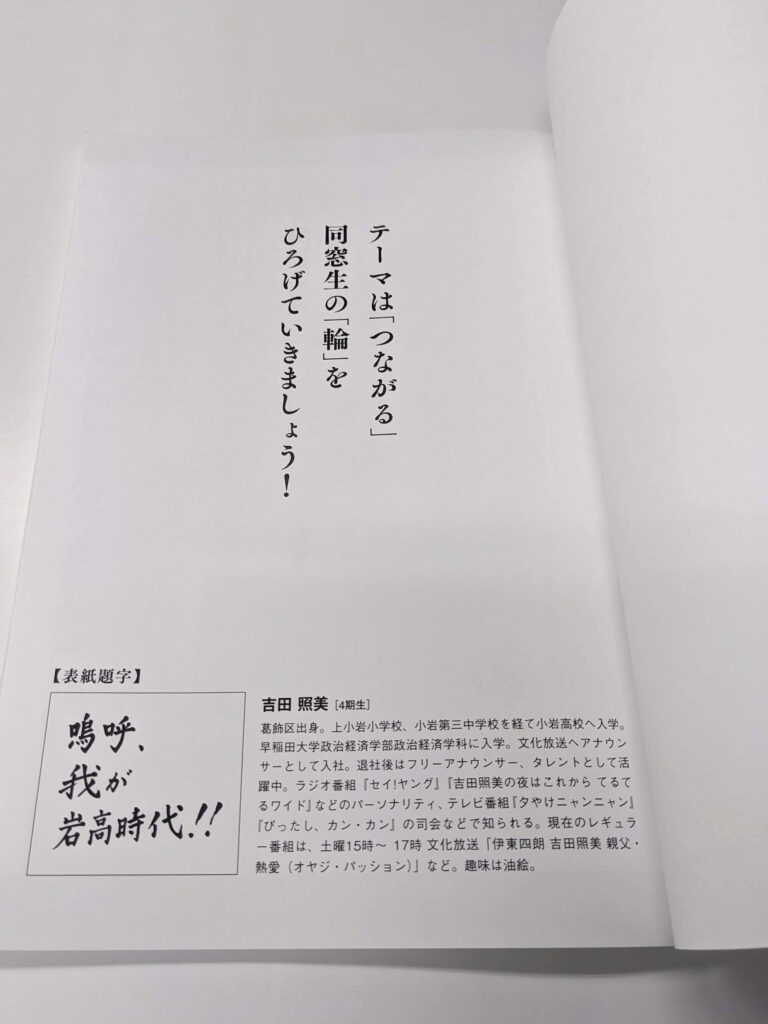 テーマは「つながる」
同窓生の「輪」を
ひろげていきましょう!
【表紙題字】
嗚呼、
我が
岩高時代.!!
吉田 照美 [4期生]
葛飾区出身。上小岩小学校、小岩第三中学校を経て小岩高校へ入学。
早稲田大学政治経済学部政治経済学科に入学。文化放送へアナウン
サーとして入社。退社後はフリーアナウンサー、タレントとして活
躍中。ラジオ番組『セイ!ヤング』『吉田照美の夜はこれから てるて
るワイド』などのパーソナリティ、テレビ番組『夕やけニャンニャン』
『ぴったし、カン・カン』の司会などで知られる。現在のレギュラ
ー番組は、土曜15時〜 17時 文化放送「伊東四朗 吉田照美 親父・
熱愛(オヤジ・パッション)」など。趣味は油絵。